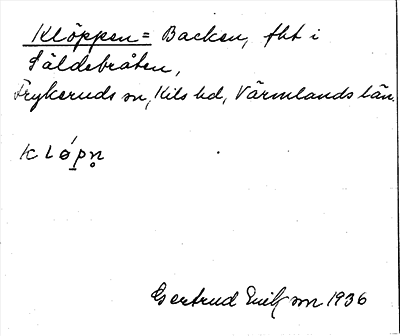 Klöppen = Backen, fht i
Säldebråten,
Frykeruds sn, Kils hd, Värmlands län.
k l ǿ p n̥
Gertrud son 1936